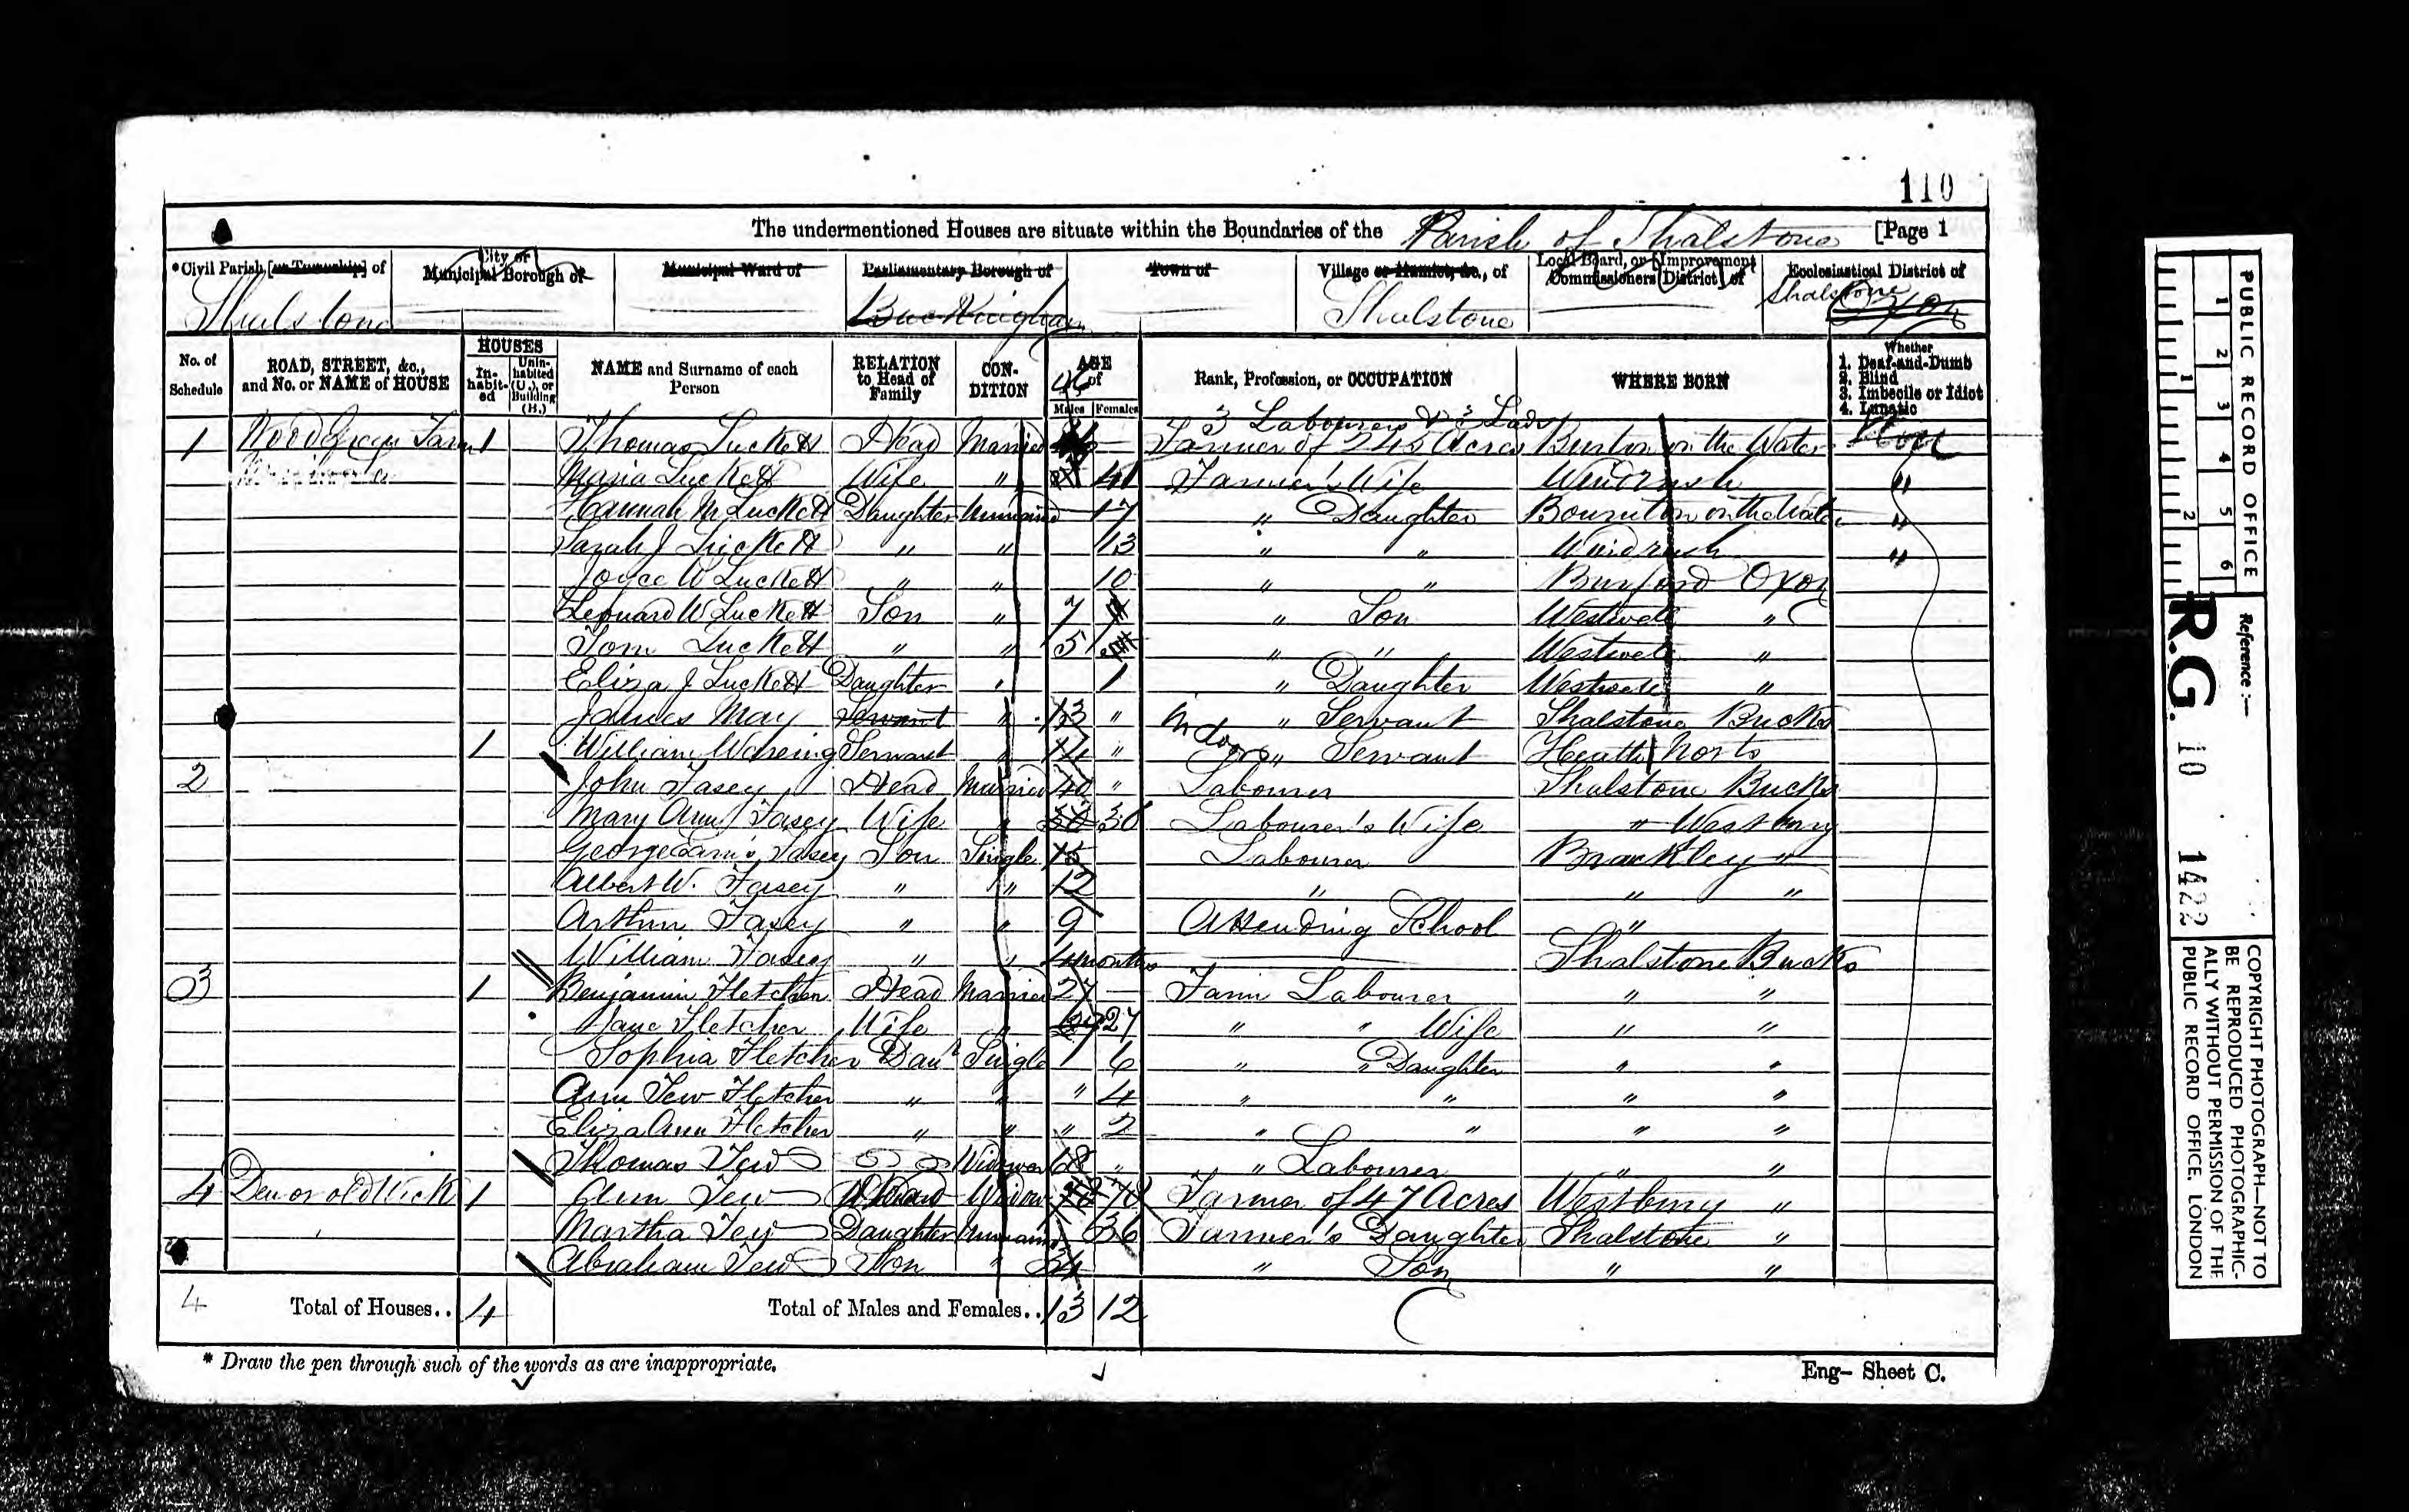 110
The undermentioned Houses are situate within the Boundaries of the Parish of Shalstone [Page 1
*Civil Parish [or Township] of Shalstone
City or Municipal Borough of
Municipal Ward of
Parliamentary Borough of Buckingham
Town of
Village or Hamlet, &c., of Shalstone
Local Board, or [Improvement Commissioners District] of
Ecclesiastical District of Shalstone
No. of Schedule
ROAD, STREET, &c., and No. or NAME of HOUSE
HOUSES
In-habit-ed
Unin-habited (U.), or Building (B.)
NAME and Surname of each Person
RELATION to Head of Family
CON-DITION
AGE of
Males Females
Rank, Profession, or OCCUPATION
WHERE BORN
Whether
1. Deaf-and-Dumb
2. Blind
3. Imbecile or Idiot
4. Lunatic
46
3 Labourers & 3 Lads
1 Farm 1 Thomas Luckett Head Married Farmer of 245 Acres Burton on the Water
Maria Luckett Wife " 41 Farmer's Wife Windrush "
Hannah M Luckett Daughter Unmarried 17 " Daughter Bourton on the Water "
Sarah J Luckett " " 13 " " Windrush "
Joyce W Luckett " " 10 " " Burford Oxon
Leonard W Luckett Son " 7 " Son Westwell "
Tom Luckett " " 5 " " Westwell "
Eliza J Luckett Daughter " 1 " Daughter Westwell "
James May Servant " 13 " Indoor " Servant Shalstone Bucks
1 William Wareing Servant " " " Servant Heath
2 John Fasey Head Married 40 " Labourer Shalstone Bucks
Mary Ann Fasey Wife " 36 Labourer's Wife " Westbury
George Fasey Son Single 15 Labourer Brackley "
Albert W. Fasey " " 12 " " "
Arthur Fasey " " 9 Attending School "
William Fasey " " months Shalstone Bucks
3 1 Benjamin Fletcher Head Married 27 Farm Labourer " "
Jane Fletcher Wife " 27 " " Wife " "
Sophia Fletcher Daur Single 6 " " Daughter " "
Ann Tew Fletcher " " " 4 " " " "
Eliza Ann Fletcher " " " 2 " " " "
Thomas Tew Widower " " Labourer " "
4 Den or old Wick 1 Ann Tew Head Widow 78 Farmer of 47 Acres Westbury "
Martha Tew Daughter Unmarried 36 Farmer's Daughter Shalstone "
Abraham Tew Son " 34 " Son " "
4 Total of Houses.. 4 Total of Males and Females.. 13 12
* Draw the pen through such of the words as are inappropriate.
Eng- Sheet C.
PUBLIC RECORD OFFICE
1 2 3 4 5 6
1 2
Reference :-
R.G. 10 1422
COPYRIGHT PHOTOGRAPH—NOT TO BE REPRODUCED PHOTOGRAPHIC-ALLY WITHOUT PERMISSION OF THE PUBLIC RECORD OFFICE, LONDON